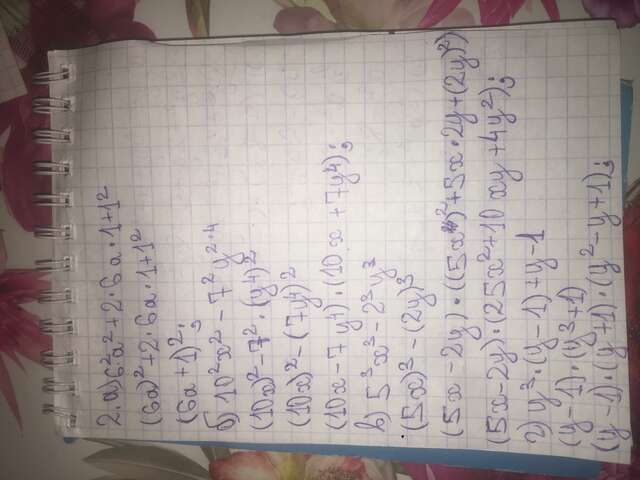 2. а) 6²a²+2·6a·1+1²
(6a)²+2·6a·1+1²
(6a+1)²;
б) 10²x²-7²y²·⁴
(10x)²-7²·(y⁴)²
(10x)²-(7y⁴)²
(10x-7y⁴)·(10x+7y⁴);
в) 5³x³-2³y³
(5x)³-(2y)³
(5x-2y)·((5x)²+5x·2y+(2y)²)
(5x-2y)·(25x²+10xy+4y²);
г) y³·(y-1)+y-1
(y-1)·(y³+1)
(y-1)·(y+1)·(y²-y+1);